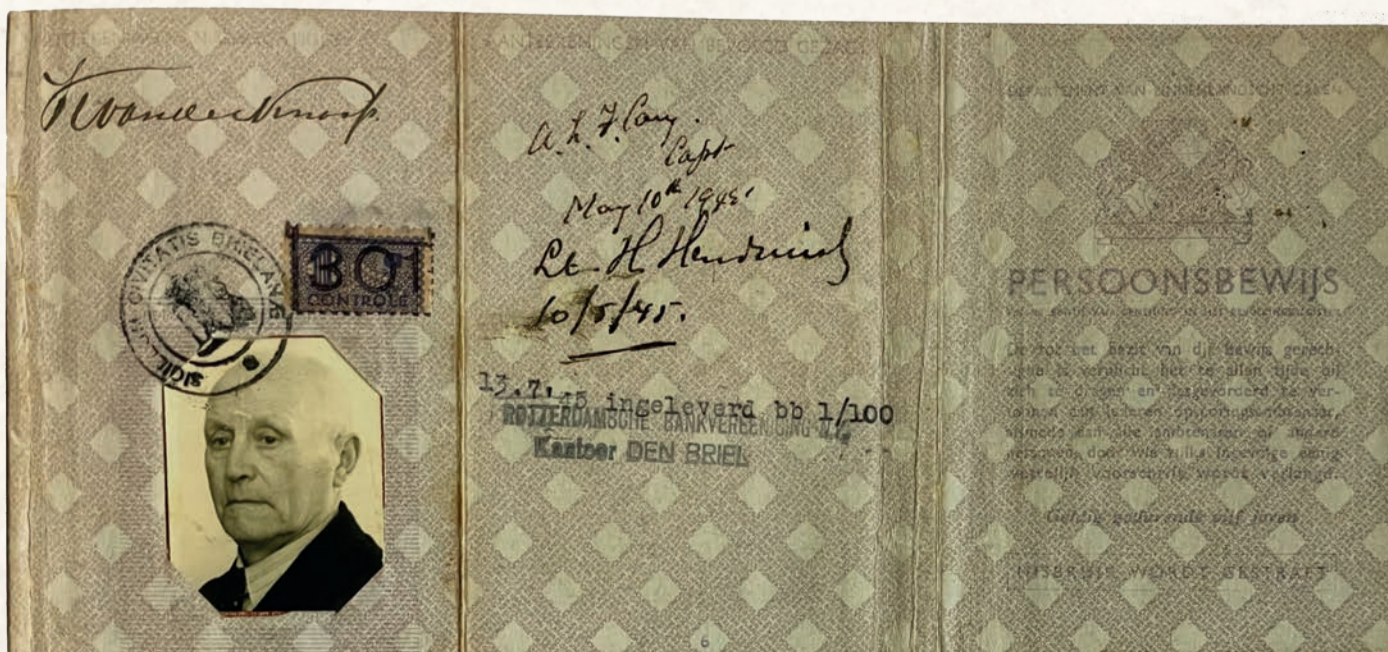 AANTEEKENINGEN VAN BEVOEGD GEZAG
SIGILLUM CIVITATIS BRIELAVAE
801
CONTROLE
Capt
May 10th 1945
Lt. H.
10/5/45.
13.7.45 ingeleverd bb 1/100
ROTTERDAMSCHE BANKVEREENIGING N.V.
Kantoor DEN BRIEL
6
DEPARTEMENT VAN BINNENLANDSCHE ZAKEN
PERSOONSBEWIJS
De tot het bezit van dit bewijs gerech-
tigde is verplicht het te allen tijde bij
zich te dragen en desgevorderd te ver-
toonen aan iederen opsporingsambtenaar,
alsmede aan alle ambtenaren of andere
personen, door wie zulks ingevolge eenig
wettelijk voorschrift wordt verlangd.
Geldig gedurende vijf jaren
MISBRUIK WORDT GESTRAFT